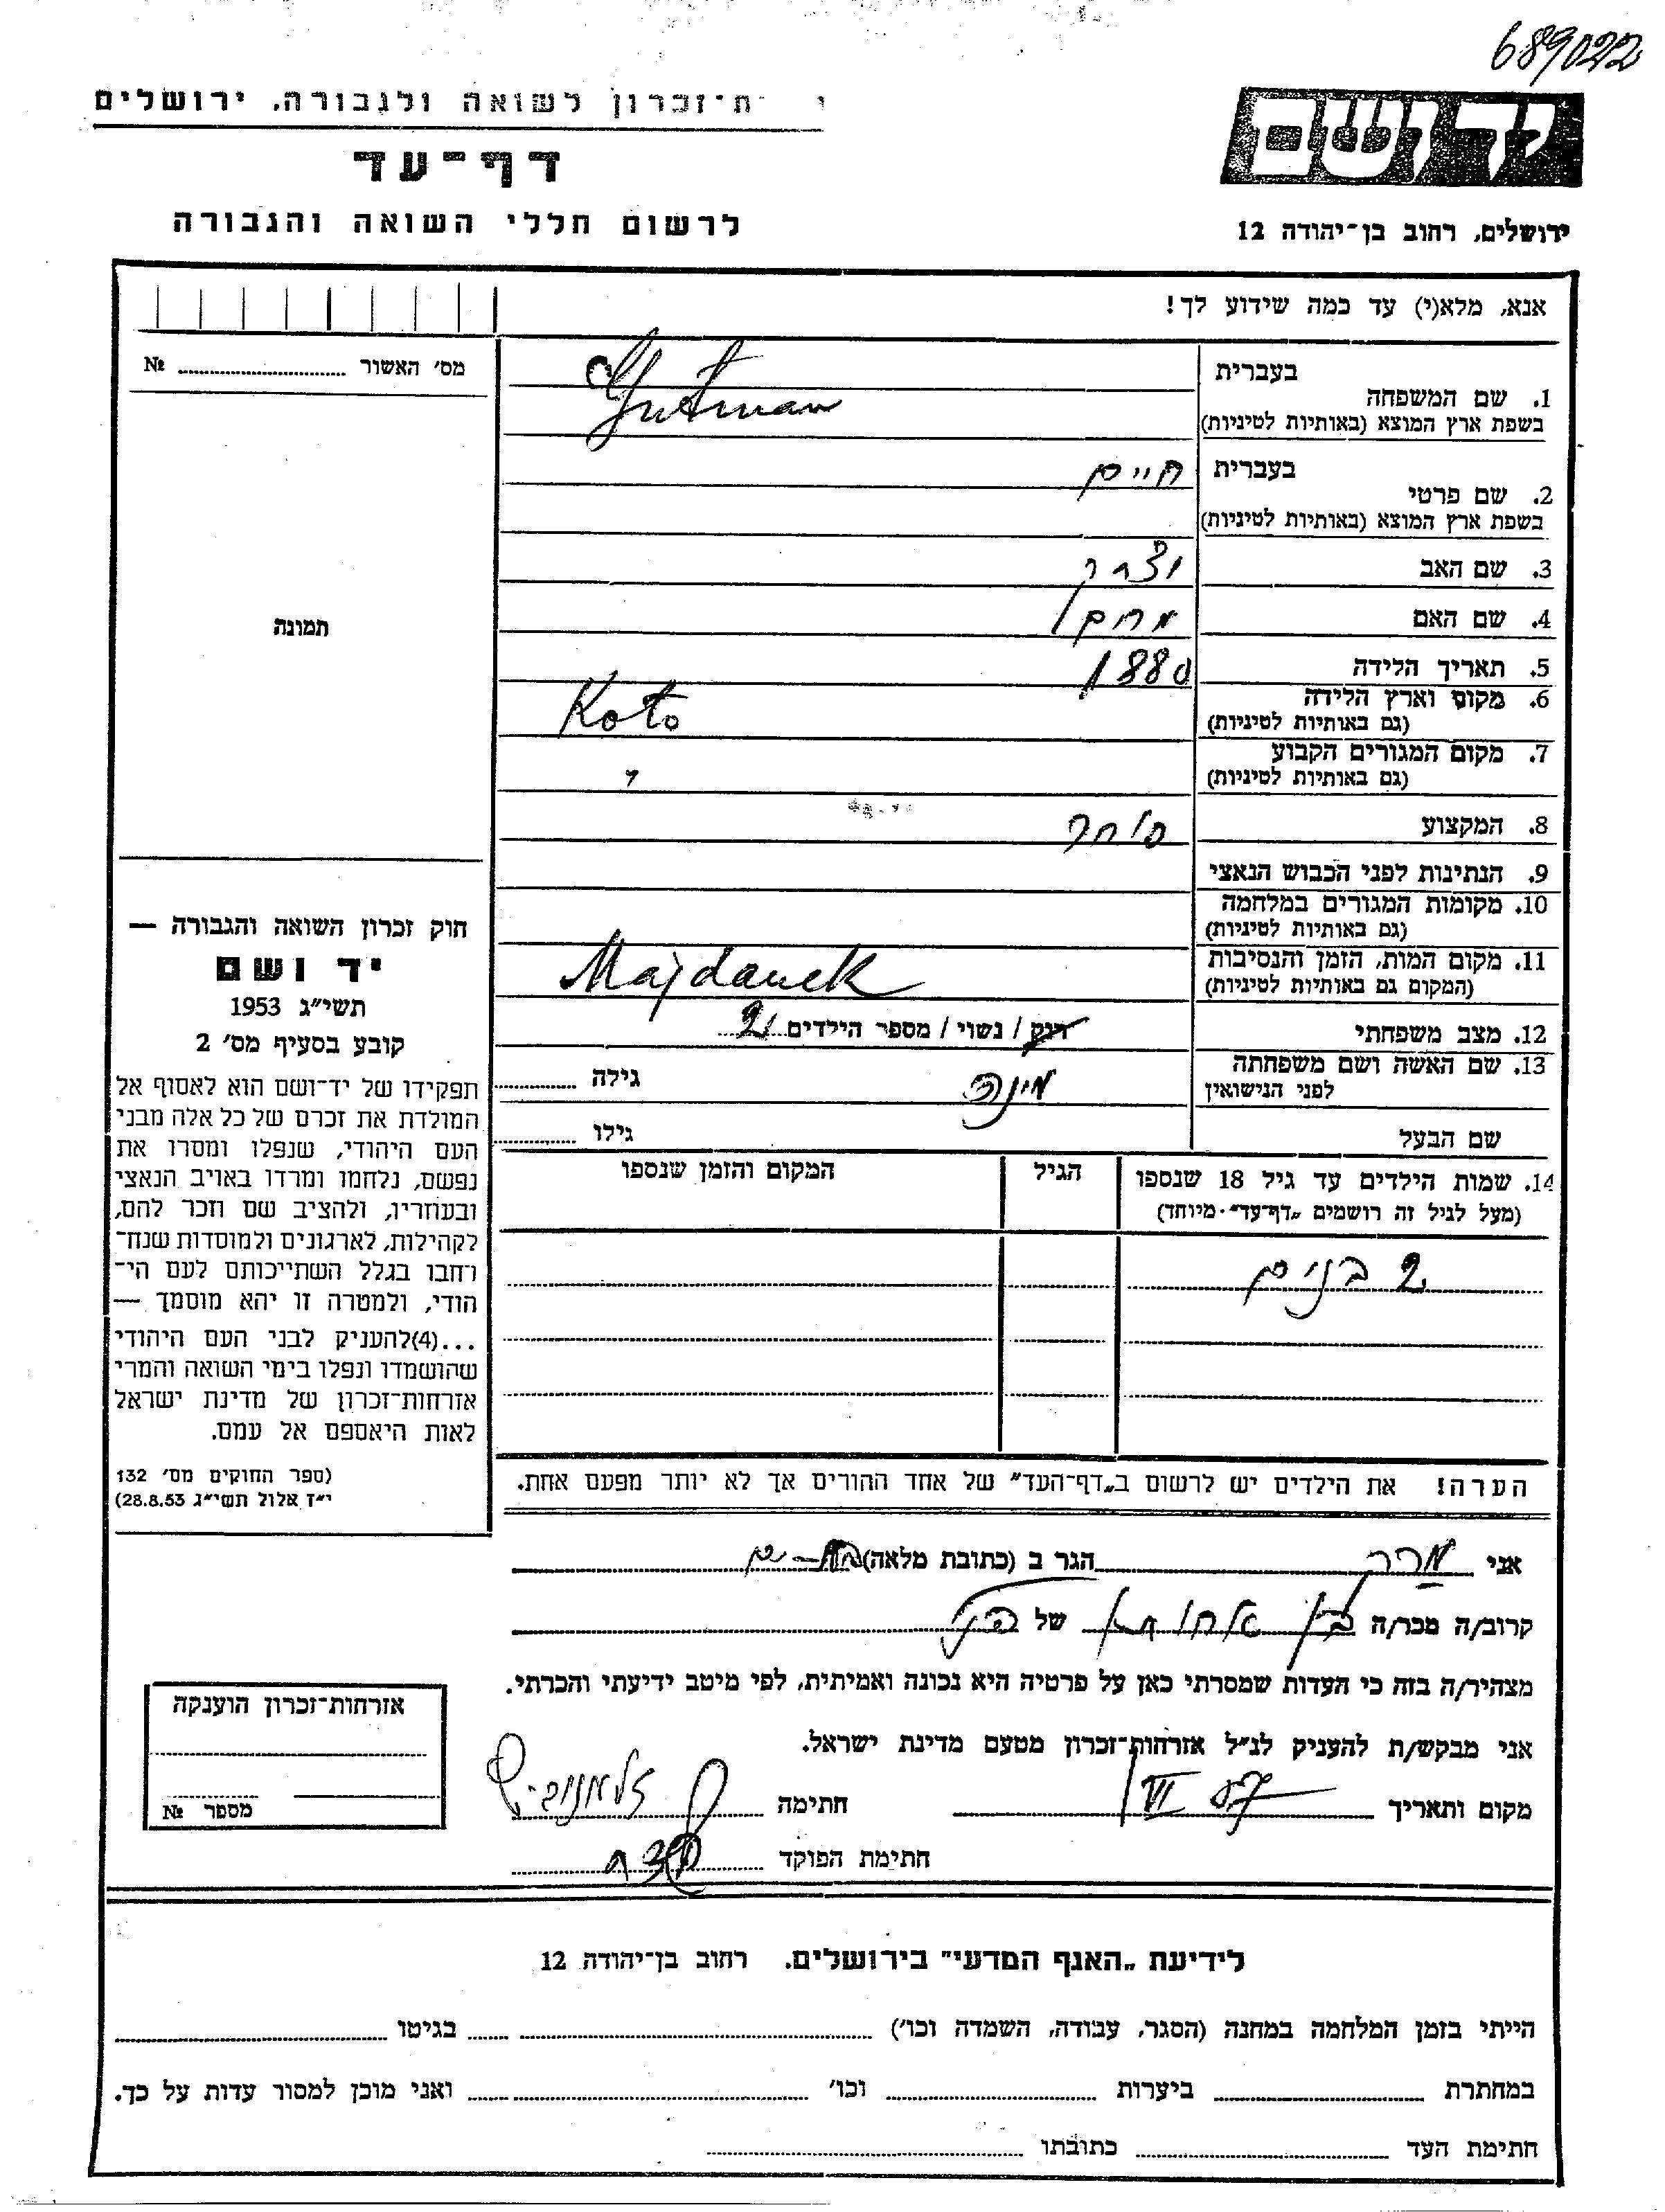 689022
ת־זכרון לשואה ולגבורה, ירושלים
יד ושם
דף־עד
לרשום חללי השואה והגבורה
ירושלים, רחוב בן־יהודה 12
אנא, מלא(י) עד כמה שידוע לך!
מס' האשור № ........
בעברית
1. שם המשפחה
Gutman
בשפת ארץ המוצא (באותיות לטיניות)
בעברית חיים
2. שם פרטי
בשפת ארץ המוצא (באותיות לטיניות)
3. שם האב יצחק
4. שם האם
תמונה
5. תאריך הלידה 1880
6. מקום וארץ הלידה Koto
(גם באותיות לטיניות)
7. מקום המגורים הקבוע "
(גם באותיות לטיניות)
8. המקצוע סוחר
9. הנתינות לפני הכבוש הנאצי
10. מקומות המגורים במלחמה
(גם באותיות לטיניות)
11. מקום המות, הזמן והנסיבות Majdanek
(המקום גם באותיות לטיניות)
12. מצב משפחתי רווק / נשוי / מספר הילדים 2
13. שם האשה ושם משפחתה מינה גילה ........
לפני הנישואין
שם הבעל גילו ........
14. שמות הילדים עד גיל 18 שנספו הגיל המקום והזמן שנספו
(מעל לגיל זה רושמים „דף־עד" מיוחד)
2 בנים
הערה! את הילדים יש לרשום ב„דף־העד" של אחד ההורים אך לא יותר מפעם אחת.
חוק זכרון השואה והגבורה —
יד ושם
תשי"ג 1953
קובע בסעיף מס' 2
תפקידו של יד־ושם הוא לאסוף אל
המולדת את זכרם של כל אלה מבני
העם היהודי, שנפלו ומסרו את
נפשם, נלחמו ומרדו באויב הנאצי
ובעוזריו, ולהציב שם וזכר להם,
לקהילות, לארגונים ולמוסדות שנח־
רחבו בגלל השתייכותם לעם הי־
הודי, ולמטרה זו יהא מוסמך —
...(4)להעניק לבני העם היהודי
שהושמדו ונפלו בימי השואה והמרי
אזרחות־זכרון של מדינת ישראל
לאות היאספם אל עמם.
(ספר החוקים מס' 132
י"ז אלול תשי"ג 28.8.53)
אני הגר ב (כתובת מלאה)
קרוב/ה מכר/ה בן אחותו של
מצהיר/ה בזה כי העדות שמסרתי כאן על פרטיה היא נכונה ואמיתית, לפי מיטב ידיעתי והכרתי.
אני מבקש/ת להעניק לנ"ל אזרחות־זכרון מטעם מדינת ישראל.
מקום ותאריך חתימה
חתימת הפוקד
אזרחות־זכרון הוענקה
מספר №
לידיעת „האגף המדעי" בירושלים, רחוב בן־יהודה 12
הייתי בזמן המלחמה במחנה (הסגר, עבודה, השמדה וכו') ........ בגיטו ........
במחתרת ........ ביערות ........ וכו' ........ ואני מוכן למסור עדות על כך.
חתימת העד ........ כתובתו ........